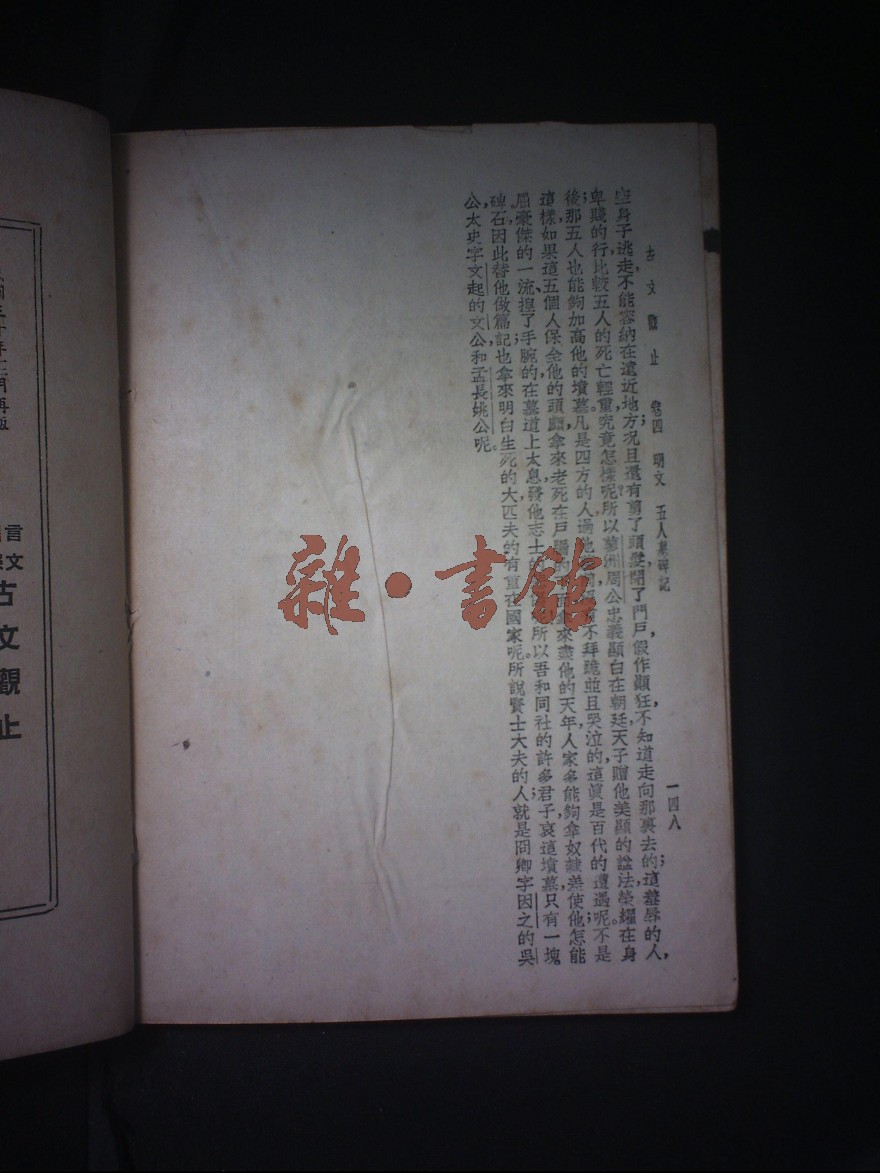 古文觀止 卷四 明文 五人墓碑記 一四八
空身子逃走，不能容納在遠近地方；況且還有剪了頭髮，閉了門戶，假作顚狂，不知道走向那裏去的；這羞辱的人，
卑賤的行，比較五人的死亡，輕重究竟怎樣呢？所以蓼洲周公，忠義顯白在朝廷，天子贈他美顯的諡法，榮耀在身
後；那五人也能夠加高他的墳墓。凡是四方的人，過他 不拜跪並且哭泣的，這眞是百代的遭遇呢；不是
這樣，如果這五個人，保全他的頭顱，拿來老死在戶牖的 拿來盡他的天年，人家多能夠拿奴隸差使他，怎能
屈豪傑的一流，捏了手腕的在墓道上太息，發他志士的 所以吾和同社的許多君子，哀這墳墓只有一塊
碑石，因此替他做篇記；也拿來明白生死的大，匹夫的有重在國家呢。所說賢士大夫的人，就是冏卿字因之的吳
公，太史字文起的文公，和孟長姚公呢。
雜·書館
年十二月再版
言文
古文觀止